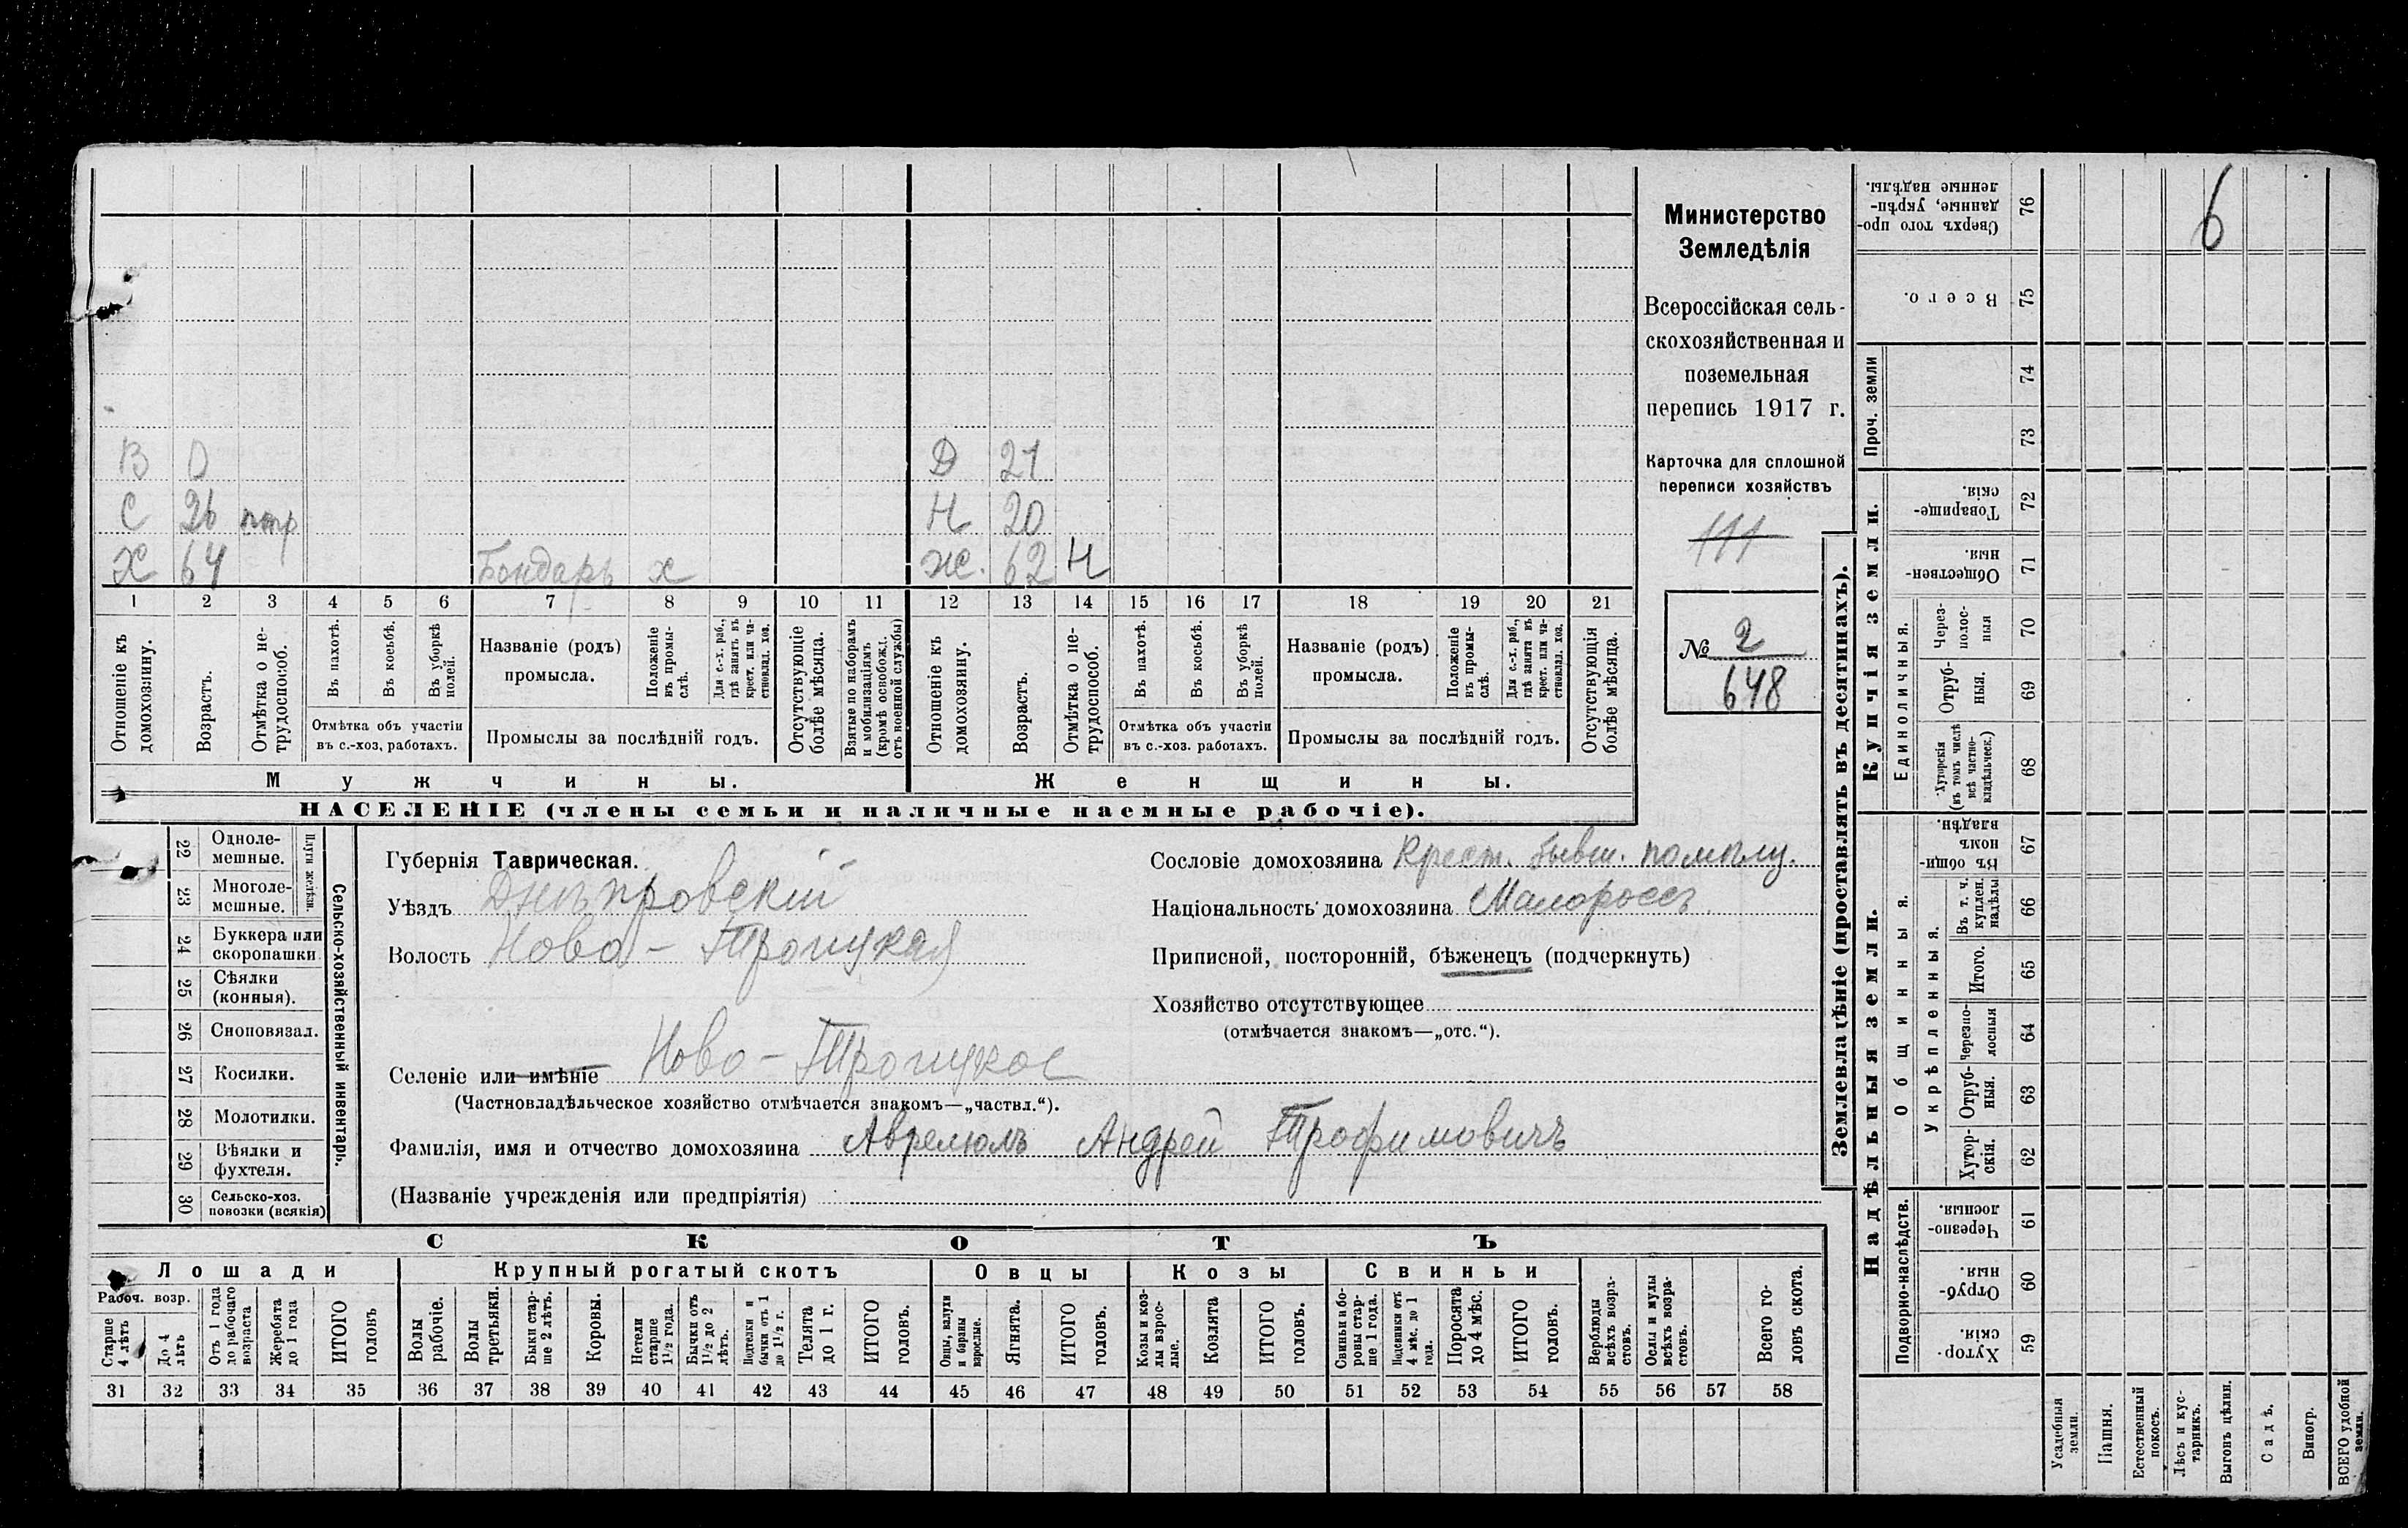 В 0 Д 21
С 26 Н 20
Х 64 Бондарь х Ж. 62 Н
1 2 3 4 5 6 7 8 9 10 11 12 13 14 15 16 17 18 19 20 21
Отношеніе къ домохозяину.
Возрастъ.
Отмѣтка о не-трудоспособ.
Въ пахотѣ.
Въ косьбѣ.
Въ уборкѣ полей.
Отмѣтка объ участіи
въ с.-хоз. работахъ.
Названіе (родъ)
промысла.
Положеніе въ промы-слѣ.
Для с.-х. раб., гдѣ занятъ въ крест. или ча-стновлад. хоз.
Промыслы за послѣдній годъ.
Отсутствующіе болѣе мѣсяца.
Взятые по наборамъ и мобилизаціямъ (кромѣ освобожд. отъ военной службы)
Отношеніе къ домохозяину.
Возрастъ.
Отмѣтка о не-трудоспособ.
Въ пахотѣ.
Въ косьбѣ.
Въ уборкѣ полей.
Отмѣтка объ участіи
въ с.-хоз. работахъ.
Названіе (родъ)
промысла.
Положеніе въ промы-слѣ.
Для с.-х. раб., гдѣ занята въ крест. или ча-стновлад. хоз.
Промыслы за послѣдній годъ.
Отсутствующія болѣе мѣсяца.
Мужчины. Женщины.
НАСЕЛЕНІЕ (члены семьи и наличные наемные рабочіе).
Министерство
Земледѣлія
Всероссійская сель-
скохозяйственная и
поземельная
перепись 1917 г.
Карточка для сплошной
переписи хозяйствъ
111
№ 2
648
Плуги желѣзн.
22 Одноле-мешные.
23 Многоле-мешные.
24 Буккера или скоропашки
25 Сѣялки (конныя).
26 Сноповязал.
27 Косилки.
28 Молотилки.
29 Вѣялки и фухтеля.
30 Сельско-хоз. повозки (всякія)
Сельско-хозяйственный инвентарь.
Губернія Таврическая.
Уѣздъ Днѣпровскій
Волость Ново-Троицкая
Селеніе или имѣніе Ново-Троицкое
(Частновладѣльческое хозяйство отмѣчается знакомъ—„частвл.“).
Фамилія, имя и отчество домохозяина Аврелюмъ Андрей Трофимовичъ
(Названіе учрежденія или предпріятія)
Сословіе домохозяина Крест. бывш. помѣщ.
Національность домохозяина Малороссъ
Приписной, посторонній, бѣженецъ (подчеркнуть)
Хозяйство отсутствующее
(отмѣчается знакомъ—„отс.“).
СКОТЪ
Лошади Крупный рогатый скотъ Овцы Козы Свиньи
Рабоч. возр.
Старше 4 лѣтъ
До 4 лѣтъ
Отъ 1 года до рабочаго возраста
Жеребята до 1 года
ИТОГО головъ
Волы рабочіе.
Волы третьяки.
Быки стар-ше 2 лѣтъ.
Коровы.
Нетели старше 1 1/2 года.
Бычки отъ 1 1/2 до 2 лѣтъ.
Подтелки и бычки отъ 1 до 1 1/2 г.
Телята до 1 г.
ИТОГО головъ.
Овцы, валухи и бараны взрослые.
Ягнята.
ИТОГО головъ.
Козы и коз-лы взрос-лые.
Козлята
ИТОГО головъ.
Свиньи и бо-ровы стар-ше 1 года.
Подсвинки отъ 4 мѣс. до 1 года.
Поросята до 4 мѣс.
ИТОГО головъ.
Верблюды всѣхъ возра-стовъ.
Ослы и мулы всѣхъ возра-стовъ.
Всего го-ловъ скота.
31 32 33 34 35 36 37 38 39 40 41 42 43 44 45 46 47 48 49 50 51 52 53 54 55 56 57 58
Землевладѣніе (проставлять въ десятинахъ).
Надѣльныя земли. Купчія земли. Проч. земли
Подворно-наслѣдств.
Общинныя.
Укрѣпленныя.
Единоличныя.
Хутор-скія. 59
Отруб-ныя. 60
Черезпо-лосныя. 61
Хутор-скія. 62
Отруб-ныя. 63
Черезпо-лосныя 64
Итого. 65
Въ т. ч. куплен. надѣлы 66
Въ общи-номъ владѣн. 67
Хуторскія (въ томъ числѣ всѣ частно-владѣльческ.) 68
Отруб-ныя. 69
Через-полос-ныя 70
Обществен-ныя. 71
Товарище-скія. 72
73
74
Всего. 75
Сверхъ того про-данные, укрѣп-ленные надѣлы. 76
6
Усадебныя земли.
Пашня.
Естественный покосъ.
Лѣсъ и кус-тарникъ.
Выгонъ цѣлин.
Садъ.
Виногр.
ВСЕГО удобной земли.